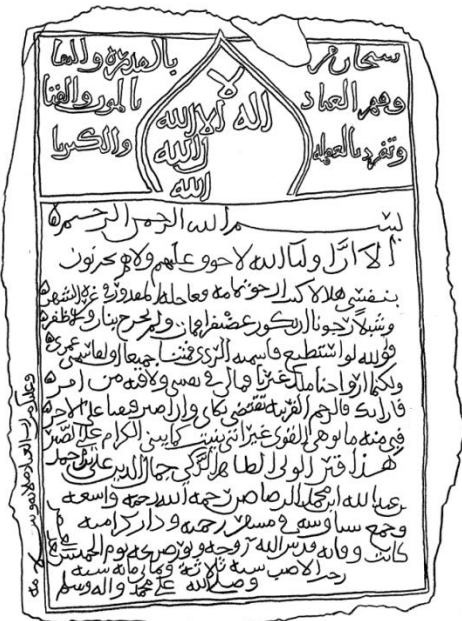 سبحان من بالقدرة والبقا
وقهر العباد بالموت والفنا
وتفرد بالعظمه والكبريا
لا اله الا الله
الله
بسم الله الرحمن الرحيم
الا ان اوليا الله لا خوف عليهم ولا هم يحزنون
بنفسي هلالا كنت ارجو تمامه فعاجله المقدور في غرة الشهر
وشبلا رجونا ان يكون غضنفرا فمات ولم يجرح بناب ولا ظفر
فوالله لو استطيع قاسمته الردى فمتنا جميعا او لقاسمني عمري
ولكنما ارواحنا ملك غيرنا فمالي في نفسي ولا فيه من امر
فان ابك فالرحم القريبة تقتضي بكاي وان اصبر فبقيا على الاجر
فبي منه ما يوهي القوى غير انني بنيت كما يبنى الكرام على الصبر
هذا قبر الولي الطاهر الزكي جمال الدين علي بن احمد
بن عبد الله ابن محمد الرصاص رحمه الله رحمة واسعه
وجمع بيننا وبينه في مستقر رحمته ودار كرامته
كانت وفاته قدس الله روحه ونور ضريحه يوم الخميس
رجب الاصب سنه ثلاثه وثمان مائه سنه
وصلى الله على محمد واله وسلم